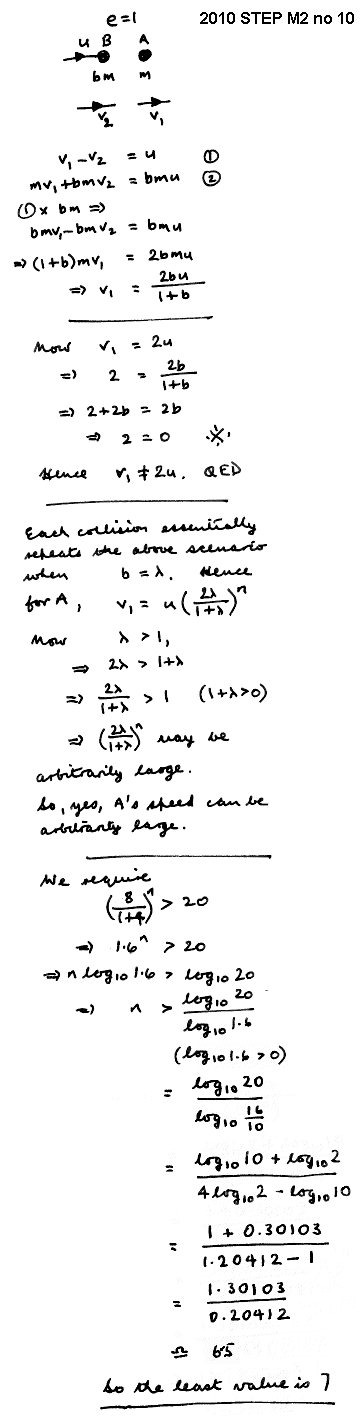 e=1 2010 STEP M2 no 10
u B A
bm m
v₂ v₁
v₁ - v₂ = u ①
mv₁ + bmv₂ = bmu ②
① × bm ⇒
bmv₁ - bmv₂ = bmu
⇒ (1+b)mv₁ = 2bmu
⇒ v₁ = 2bu/(1+b)
Now v₁ = 2u
⇒ 2 = 2b/(1+b)
⇒ 2+2b = 2b
⇒ 2 = 0 ※
Hence v₁ ≠ 2u. QED
Each collision essentially
repeats the above scenario
when b = λ. Hence
for A, v₁ = u(2λ/(1+λ))ⁿ
Now λ > 1,
⇒ 2λ > 1+λ
⇒ 2λ/(1+λ) > 1 (1+λ>0)
⇒ (2λ/(1+λ))ⁿ may be
arbitrarily large.
So, yes, A's speed can be
arbitrarily large.
We require
(8/(1+4))ⁿ > 20
⇒ 1.6ⁿ > 20
⇒ n log₁₀ 1.6 > log₁₀ 20
⇒ n > log₁₀ 20 / log₁₀ 1.6
(log₁₀ 1.6 > 0)
= log₁₀ 20 / log₁₀ (16/10)
= (log₁₀ 10 + log₁₀ 2) / (4 log₁₀ 2 - log₁₀ 10)
= (1 + 0.30103) / (1.20412 - 1)
= 1.30103 / 0.20412
≏ 6.5
So the least value is 7